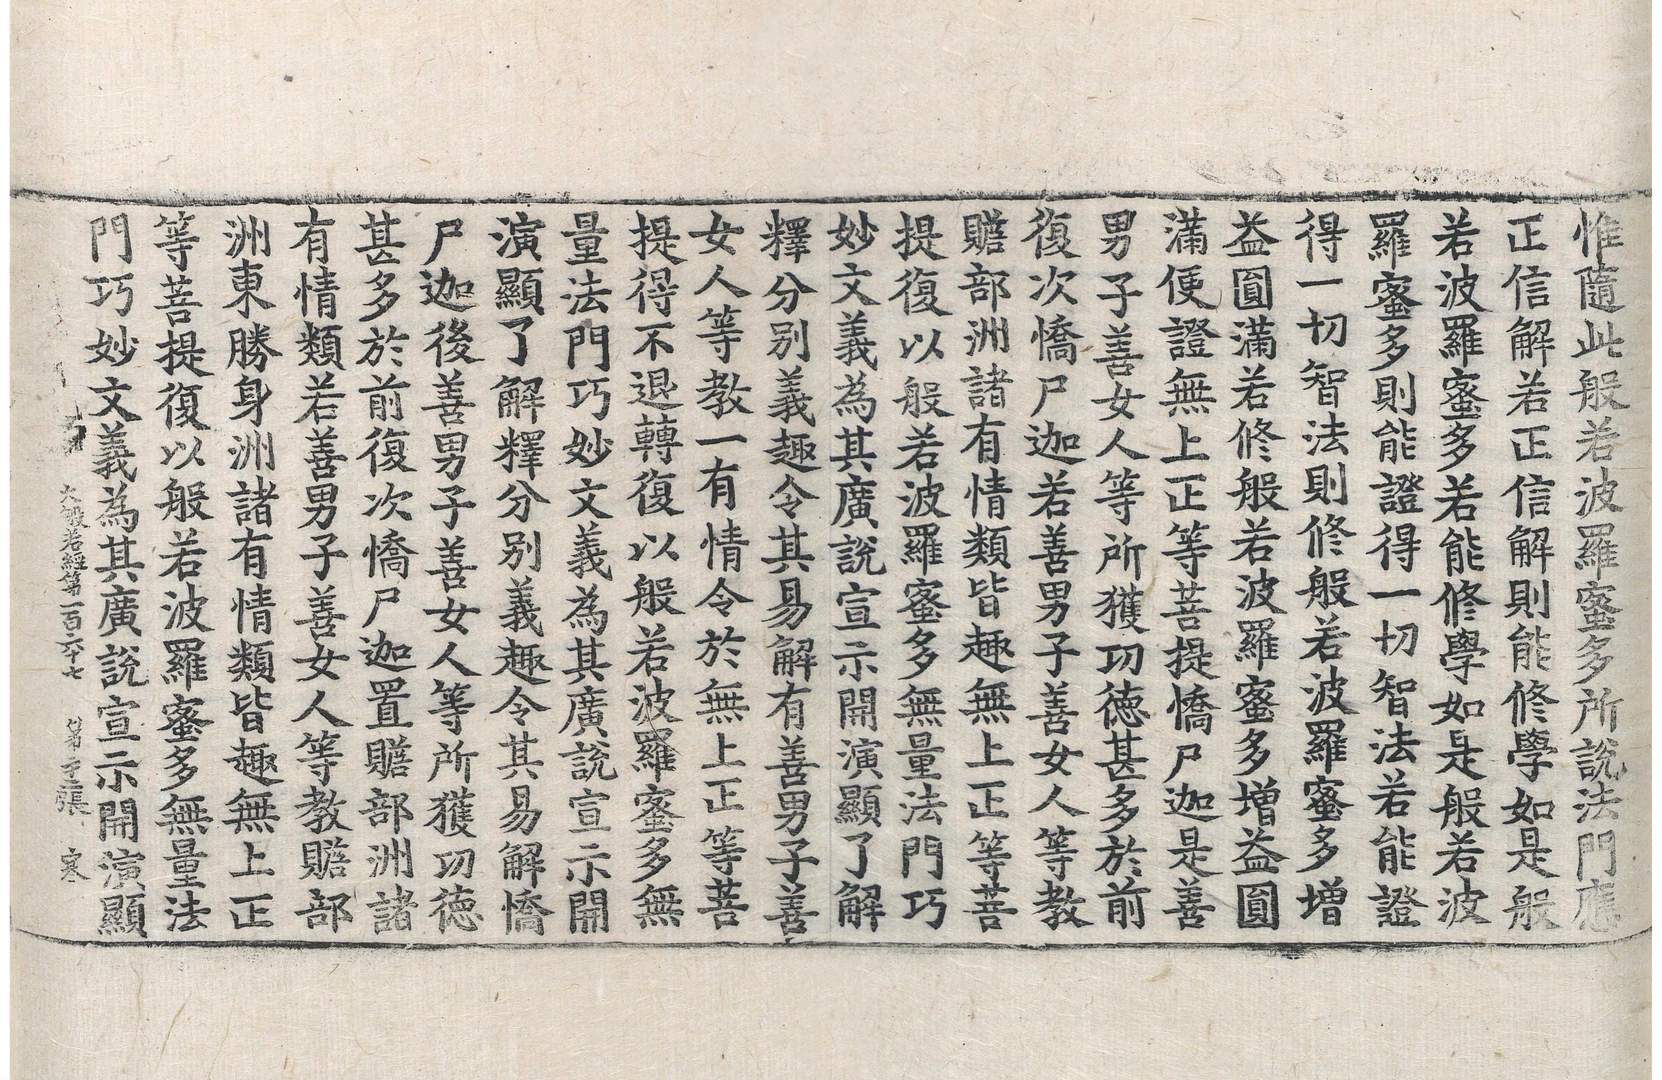 惟隨此般若波羅蜜多所說法門應
正信解若正信解則能修學如是般
若波羅蜜多若能修學如是般若波
羅蜜多則能證得一切智法若能證
得一切智法則修般若波羅蜜多增
益圓滿若修般若波羅蜜多增益圓
滿便證無上正等菩提憍尸迦是善
男子善女人等所獲功德甚多於前
復次憍尸迦若善男子善女人等教
贍部洲諸有情類皆趣無上正等菩
提復以般若波羅蜜多無量法門巧
妙文義為其廣說宣示開演顯了解
釋分别義趣令其易解有善男子善
女人等教一有情令於無上正等菩
提得不退轉復以般若波羅蜜多無
量法門巧妙文義為其廣說宣示開
演顯了解釋分别義趣令其易解憍
尸迦後善男子善女人等所獲功德
甚多於前復次憍尸迦置贍部洲諸
有情類若善男子善女人等教贍部
洲東勝身洲諸有情類皆趣無上正
等菩提復以般若波羅蜜多無量法
門巧妙文義為其廣說宣示開演顯
大般若經第一百六十七 第 張 寒